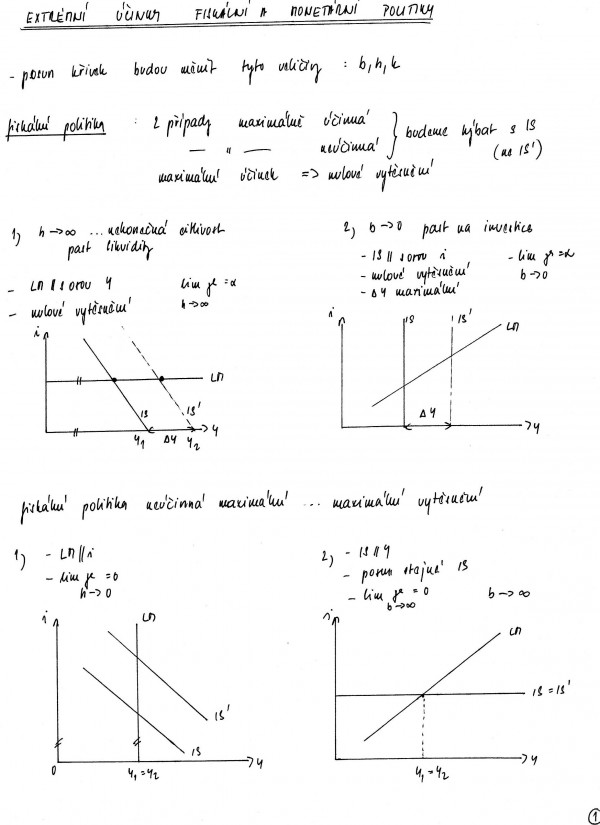 EXTRÉMNÍ ÚČINKY FISKÁLNÍ A MONETÁRNÍ POLITIKY
- posun křivek budou měnit tyto veličiny : b, h, k
fiskální politika : 2 případy maximálně účinná
— " — neúčinná } budeme hýbat s IS (na IS')
maximální účinek => nulové vytěsnění
1) h → ∞ ... nekonečná citlivost
past likvidity
- LM || s osou Y lim γ = α
h → ∞
- nulové vytěsnění
i
LM
IS
IS'
Y1 ΔY Y2 Y
2) b → 0 past na investice
- IS || s osou i - lim γ = α
- nulové vytěsnění b → 0
- ΔY maximální
i
IS IS'
LM
ΔY
Y
fiskální politika neúčinná maximální ... maximální vytěsnění
1) - LM || i
- lim γ = 0
h → 0
i
LM
IS'
IS
0 Y1 = Y2 Y
2) - IS || Y
- posun stejné IS
- lim γ = 0 b → ∞
b → ∞
i
LM
IS = IS'
Y1 = Y2 Y
1